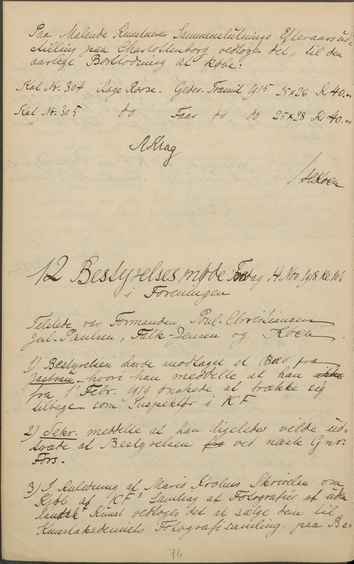 Paa Malende Kunstneres Sammenslutnings Efteraarsud-
stilling paa Charlottenborg vedtoges det, til den
aarlige Bortlodning at købe:
Kat Nr. 304 Aage Roose. Geder. Tramit 1915 25x26 Kr 40.-
Kat Nr. 305 do Faar do do 25x28 Kr 40.-
AKrag
HKoen
12 Bestyrelsesmøde 4. Nov. 1918 Kl.
i Foreningen
Tilstede var Formanden, Poul Christiansen
Jul. Paulsen, Falk-Jensen og Koen
1) Bestyrelsen havde modtaget et Brev fra
hvori han meddelte at han
fra 1 Febr. 1919 ønskede at trække sig
tilbage som Inspektør i KF
2) Sekr. meddelte at han ligeledes vilde ud-
træde af Bestyrelsen ved næste
3) I Anledning af Mario Krohns Skrivelse om
Køb af KF' Samling af Fotografier af
Kunst vedtoges det at sælge dem til
Kunstakademiets Fotografisamling paa
76